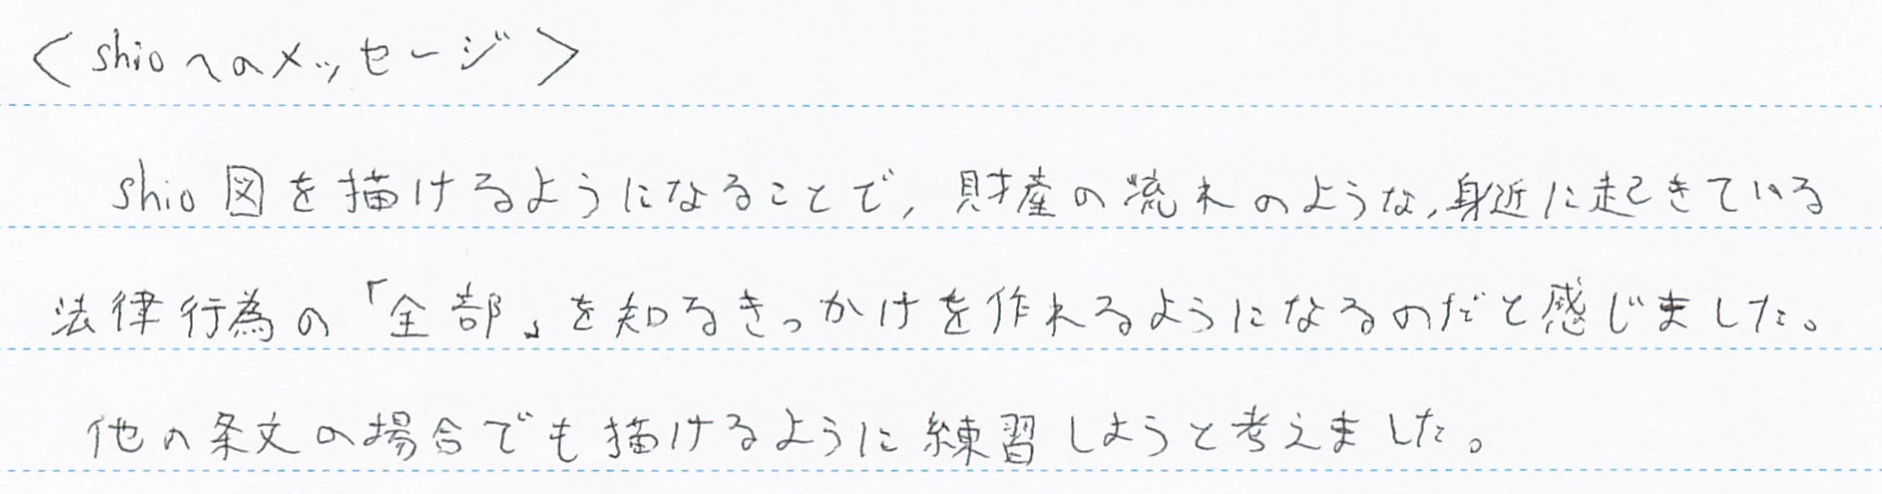 <shioへのメッセージ>
shio図を描けるようになることで,財産の流れのような,身近に起きている
法律行為の「全部」を知るきっかけを作れるようになるのだと感じました。
他の条文の場合でも描けるように練習しようと考えました。